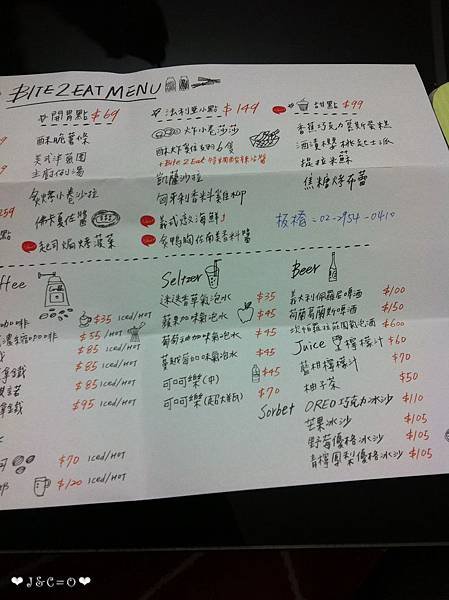 BITE 2 EAT MENU
開胃點 $69
酥脆薯條
美式洋蔥圈
主廚例湯
炙烤小卷沙拉
佛卡夏佐醬
起司焗烤菠菜
259
點
法利里小點 $149
炸小卷莎莎
+Bite 2 Eat
凱薩沙拉
匈牙利香料雞柳
義式燉海鮮
甜點 $99
香蕉巧克力慕斯蛋糕
酒漬櫻桃起士派
提拉米蘇
焦糖烤布蕾
板橋-02-2954-0410
ffee
咖啡 $35 Iced/HOT
$55 /HOT
$85 Iced/HOT
拿鐵 $85 Iced/HOT
$85 Iced/HOT
拿鐵 $95 Iced/HOT
$70 Iced/HOT
$120 Iced/HOT
Seltzer
迷迭香氣泡水 $35
蘋果口味氣泡水 $45
葡萄柚口味氣泡水 $45
蔓越莓口味氣泡水 $45
可口可樂(中) $45
可口可樂(超大瓶) $70
Beer
義大利佩羅尼啤酒 $100
$150
氣泡酒 $600
Juice 檸檬汁 $60
藍柑檸檬汁 $70
柚子茶 $50
Sorbet OREO巧克力冰沙 $110
芒果冰沙 $105
野莓優格冰沙 $105
青檸鳳梨優格冰沙 $105
❤J&C=O❤